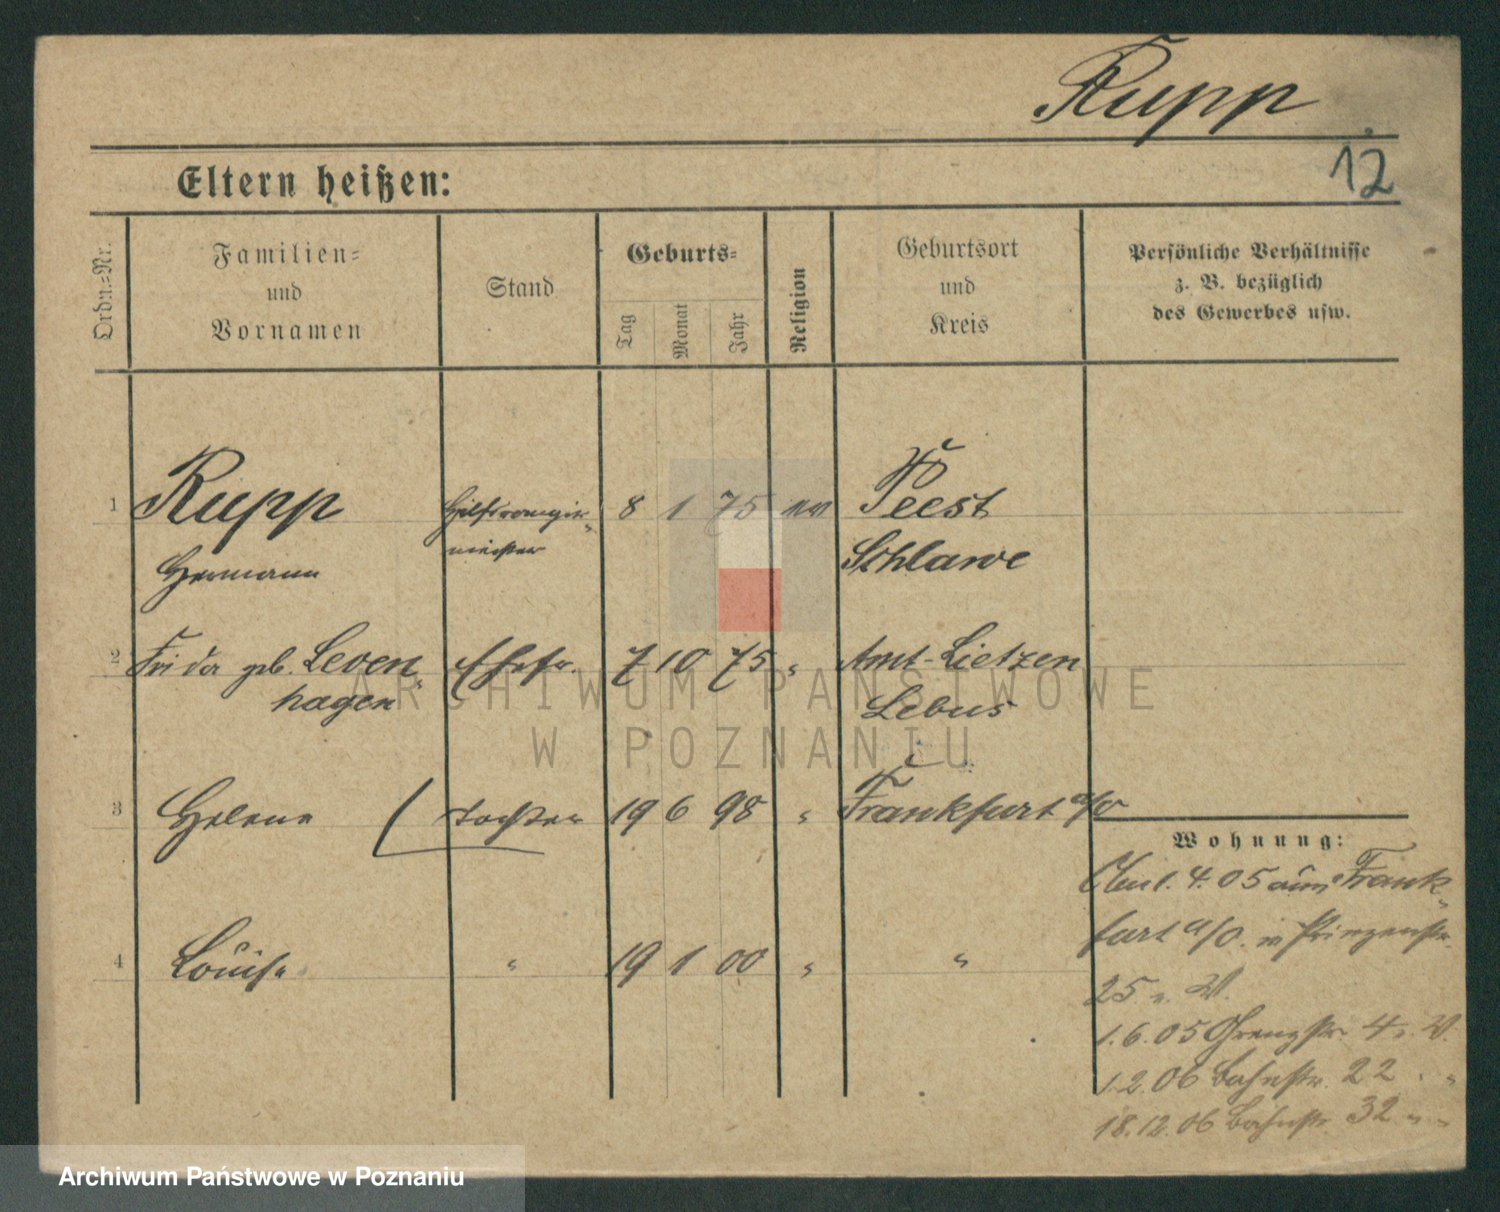 Rupp
12
Eltern heißen:
Ordn.=Nr.
Familien=
und
Vornamen
Stand
Geburts=
Tag
Monat
Jahr
Religion
Geburtsort
und
Kreis
Persönliche Verhältnisse
z. B. bezüglich
des Gewerbes usw.
1 Rupp Hilfsrangier- 8 1 75 ev Peest
Hermann meister Schlawe
2 Frieda geb. Leven- Ehefr. 7 10 75 " Amt-Lietzen
hagen Lebus
3 Helene Tochter 19 6 98 " Frankfurt a/O
4 Louise " 19 1 00 " "
Wohnung:
1. 4. 05 aus Frank-
furt a/O. in Prinzenstr.
25 v. W.
1. 6. 05 Grenzstr. 4 v. W.
1. 2. 06 Bahnstr. 22 " "
18. 12. 06 Bahnstr. 32 " "
ARCHIWUM PAŃSTWOWE
W POZNANIU
Archiwum Państwowe w Poznaniu